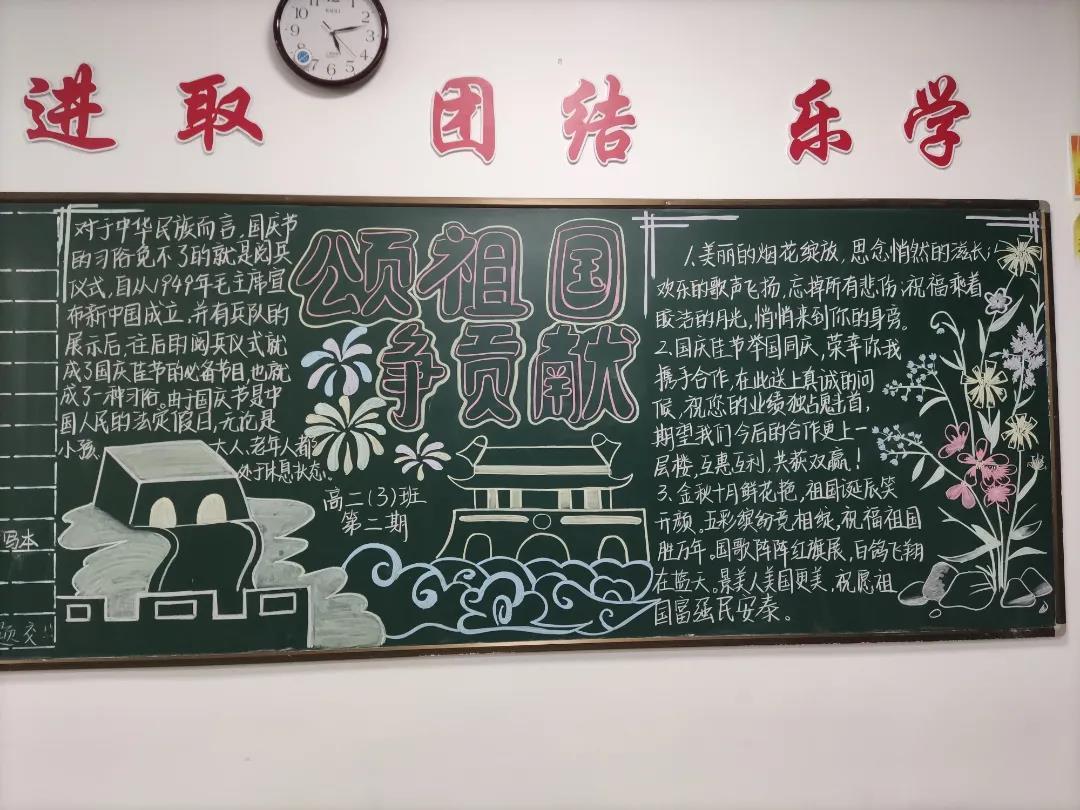 进取 团结 乐学
对于中华民族而言,国庆节
的习俗免不了的就是阅兵
仪式,自从1949年毛主席宣
布新中国成立,并有兵队的
展示后,往后的阅兵仪式就
成了国庆佳节的必备节目,也就
成了一种习俗。由于国庆节是中
国人民的法定假日,无论是
小孩、大人、老年人都
处于休息状态。
颂祖国
争贡献
高二(3)班
第二期
1.美丽的烟花绽放,思念悄然的滋长;
欢乐的歌声飞扬,忘掉所有悲伤;祝福乘着
皎洁的月光,悄悄来到你的身旁。
2.国庆佳节举国同庆,荣幸你我
携手合作,在此送上真诚的问
候,祝您的业绩独占鳌首,
期望我们今后的合作更上一
层楼,互惠互利,共获双赢!
3.金秋十月鲜花艳,祖国诞辰笑
开颜。五彩缤纷竞相绽,祝福祖国
胜万年。国歌阵阵红旗展,白鸽飞翔
在蓝天,景美人美国更美,祝愿祖
国富强民安泰。
写本
交!!